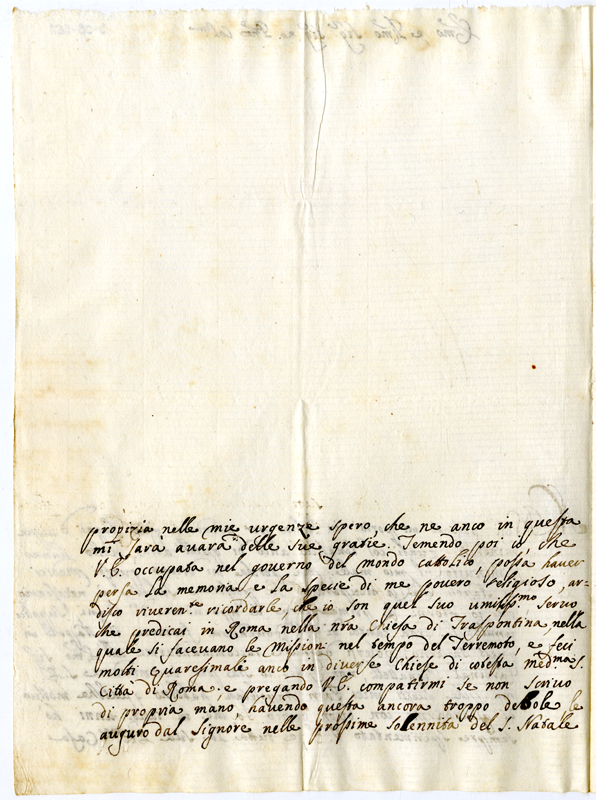 propizia nelle mie urgenze spero, che ne anco in questa
mi sarà avara delle sue grazie. Temendo poi io, che
V.E. occupata nel governo del mondo cattolico, possa haver
persa la memoria, e la specie di me povero religioso, ar-
disco riveren.te ricordarle, che io son quel suo umiliss.mo servo
che predicai in Roma nella nr̃a Chiesa di Traspontina, nella
quale si facevano le Missioni nel tempo del Terremoto, e feci
molti Quaresimali anco in diverse Chiese di cotesta med.ma S.
Città di Roma; e pregando V.E. compatirmi se non scrivo
di propria mano, havendo questa ancora troppo debole le
auguro dal Signore nelle prossime solennità del S. Natale